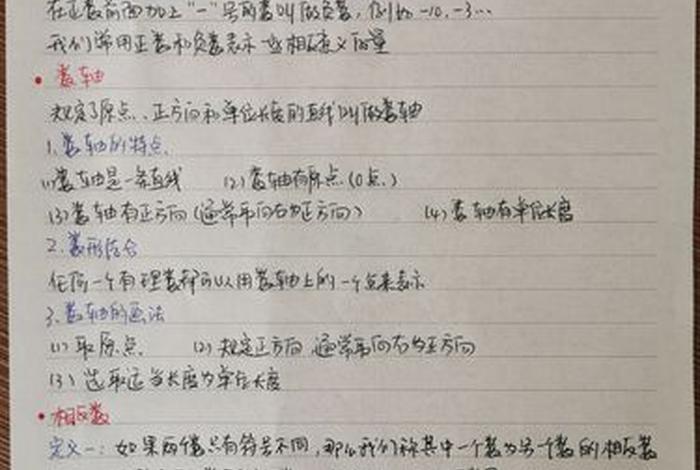 在正数前面加上“-”号的数叫做负数，例如 -10、-3…
我们常用正数和负数表示一些相反意义的量
• 数轴
规定了原点、正方向和单位长度的直线叫做数轴
1.数轴的特点
(1)数轴是一条直线 (2)数轴有原点(0点)
(3)数轴有正方向(通常取向右为正方向) (4)数轴有单位长度
2.数形结合
任何一个有理数都可以用数轴上的一个点来表示
3.数轴的画法
(1)取原点 (2)规定正方向，通常取向右为正方向
(3)选取适当长度为单位长度
• 相反数
定义一：如果两个数只有符号不同，那么我们称其中一个数为另一个数的相反数